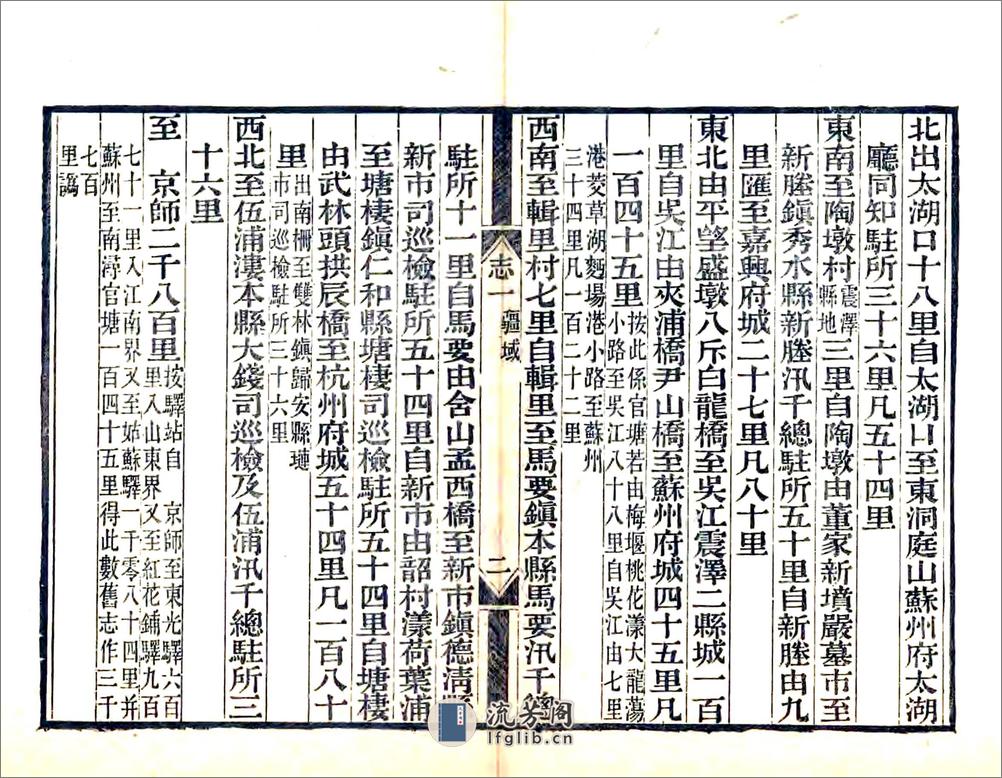 北出太湖口十八里自太湖口至東洞庭山蘇州府太湖
廳同知駐所三十六里凡五十四里
東南至陶墩村震澤縣地三里自陶墩由董家新墳嚴墓市至
新塍鎮秀水縣新塍汛千總駐所五十里自新塍由九
里匯至嘉興府城二十七里凡八十里
東北由平望盛墩八斥白龍橋至吳江震澤二縣城一百
里自吳江由夾浦橋尹山橋至蘇州府城四十五里凡
一百四十五里按此係官塘若由梅堰桃花漾大龍蕩
小路至吳江八十八里自吳江由七里
港菱草湖麪場港小路至蘇州
三十四里凡一百二十二里
西南至輯里村七里自輯里至馬要鎮本縣馬要汛千總
志一 疆域 二
駐所十一里自馬要由舍山孟西橋至新市鎮德清縣
新市司巡檢駐所五十四里自新市由韶村漾荷葉浦
至塘棲鎮仁和縣塘棲司巡檢駐所五十四里自塘棲
由武林頭拱辰橋至杭州府城五十四里凡一百八十
里出南柵至雙林鎮歸安縣璉
市司巡檢駐所三十六里
西北至伍浦漊本縣大錢司巡檢及伍浦汛千總駐所三
十六里
至 京師二千八百里按驛站自 京師至東光驛六百
里入山東界又至紅花鋪驛九百
七十一里入江南界又至姑蘇驛一千零八十四里并
蘇州至南潯官塘一百四十五里得此數舊志作三千
七百
里譌
流芳閣
lfglib.cn